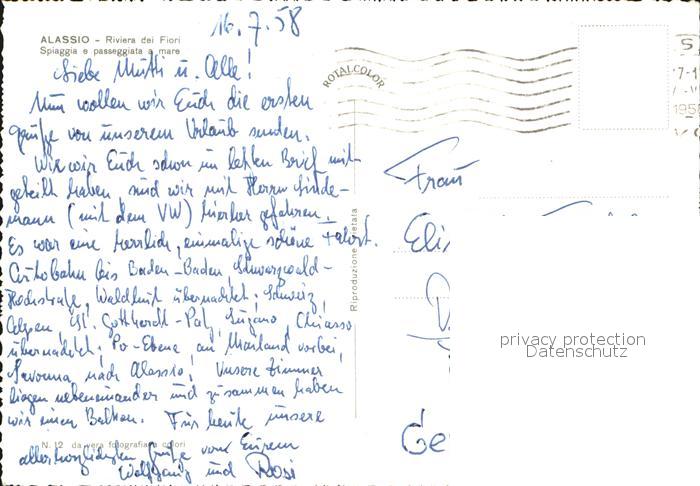 16.7.58
ALASSIO - Riviera dei Fiori
Spiaggia e passeggiata a mare
Liebe Mutti u. Alle!
Nun wollen wir Euch die ersten
Grüße von unserem Urlaub senden.
Wie wir Euch schon im letzten Brief mit-
geteilt haben sind wir mit Herrn Linde-
mann (mit dem VW) hierher gefahren.
Es war eine herrlich, einmalige schöne Fahrt.
Autobahn bis Baden-Baden, Schwarzwald-
Hochstraße, Waldshut übernachtet, Schweiz,
Alpen, St. Gotthardt-Paß, Lugano, Chiasso
übernachtet, Po-Ebene, an Mailand vorbei,
Savonna nach Alassio. Unsere Zimmer
liegen nebeneinander und zusammen haben
wir einen Balkon. Für heute unsere
allerherzlichsten Grüße von Eurem
Wolfgang und Rosi
N. 12 da vera fotografia a colori
Riproduzione vietata
ROTALCOLOR
S
195
Frau
Elis
D
Ge
privacy protection
Datenschutz